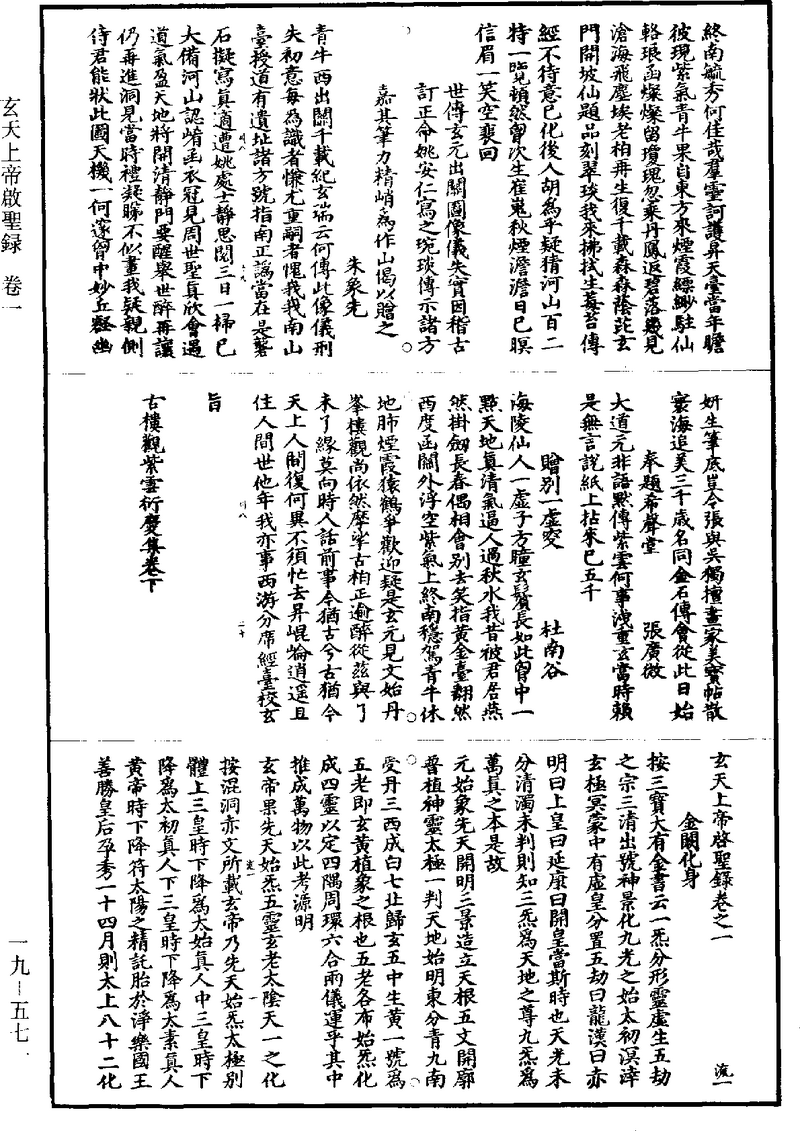 玄天上帝啟聖録　卷一
一九—五七
終南毓秀何佳哉羣靈訶護昇天臺當年瞻
彼現紫氣青牛果自東方來煙霞縹緲駐仙
輅琅函燦燦留瓊瑰忽乘丹鳳返碧落幾見
滄海飛塵埃老柏再生復千載森森蔭茈玄
門開坡仙題品刻翠琰我來拂拭生莓苔傳
經不待意已化後人胡爲乎疑猜河山百二
特一覽頓然胷次生崔嵬秋煙澹澹日已瞑
信眉一笑空裵回
世傳玄元出關圖像儀失實因稽古
訂正命姚安仁寫之琬琰傳示諸方
嘉其筆力精峭爲作山偈以贈之
朱象先
青牛西出關千載紀玄瑞云何傳此像儀刑
失初意每為識者慊尤重嗣者愧我我南山
臺授道有遺址諸方號指南正譌當在是礱
石擬寫真適遭姚處士静思閱三日一掃已
大備河山認崤函衣冠見周世聖真欣會遇
道氣盈天地將開清静門要醒舉世醉再讓
仍再進洞見當時禮凝睇不似畫我疑親侧
侍君能狀此圖天機一何邃胷中妙丘壑幽
妍生筆底豈令張與吳獨擅畫家美寶帖散
寰海追美三千歳名同金石傳會從此日始
奉題希聲堂　張廣微
大道元非語默傳紫雲何事洩重玄當時賴
是無言說紙上拈來已五千
贈別一虚叟　杜南谷
海陵仙人一虛子方瞳玄鬢長如此胷中一
㸃天地真清氣逼人過秋水我昔被君居燕
然掛劔長春偶相會別去笑指黄金臺翻然
西度函關外浮空紫氣上終南穏駕青牛休
地肺煙霞猿鶴爭歡迎疑是玄元見文始丹
峯樓觀尚依然摩挲古柏正逾醉從兹與了
未了緣莫向時人話前事今猶古兮古猶今
天上人間復何異不須忙去昇崐崘逍遥且
住人間世他年我亦事西游分席經臺校玄
旨
古樓觀紫雲衍慶集卷下
玄天上帝啓聖録卷之一　流一
金闕化身
按三寶大有金書云一炁分形靈虚生五劫
之宗三清出號神景化九光之始太初溟涬
玄極冥蒙中有虛皇分置五劫曰龍漢曰赤
明曰上皇曰延康曰開皇當斯時也天光未
分清濁未判則知三炁爲天地之尊九炁爲
萬真之本是故
元始象先天開明三景造立天根五文開廓
普植神靈太極一判天地始明東分青九南
受丹三西成白七北歸玄五中生黄一號爲
五老即玄黄植象之根也五老各布始炁化
成四靈以定四隅周環六合兩儀運乎其中
推成萬物以此考源明
玄帝果先天始炁五靈玄老太陰天一之化
按混洞赤文所載玄帝乃先天始炁太極别
體上三皇時下降爲太始真人中三皇時下
降爲太初真人下三皇時下降爲太素真人
黄帝時下降符太陽之精託胎於淨樂國王
善勝皇后孕秀一十四月則太上八十二化